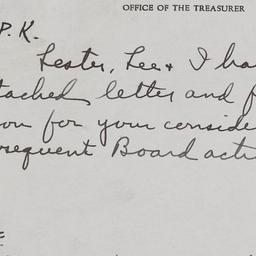 OFFICE OF THE TREASURER
P.K.
Lester, Lee + I ha
tached letter and f
on for your conside
sequent Board acti